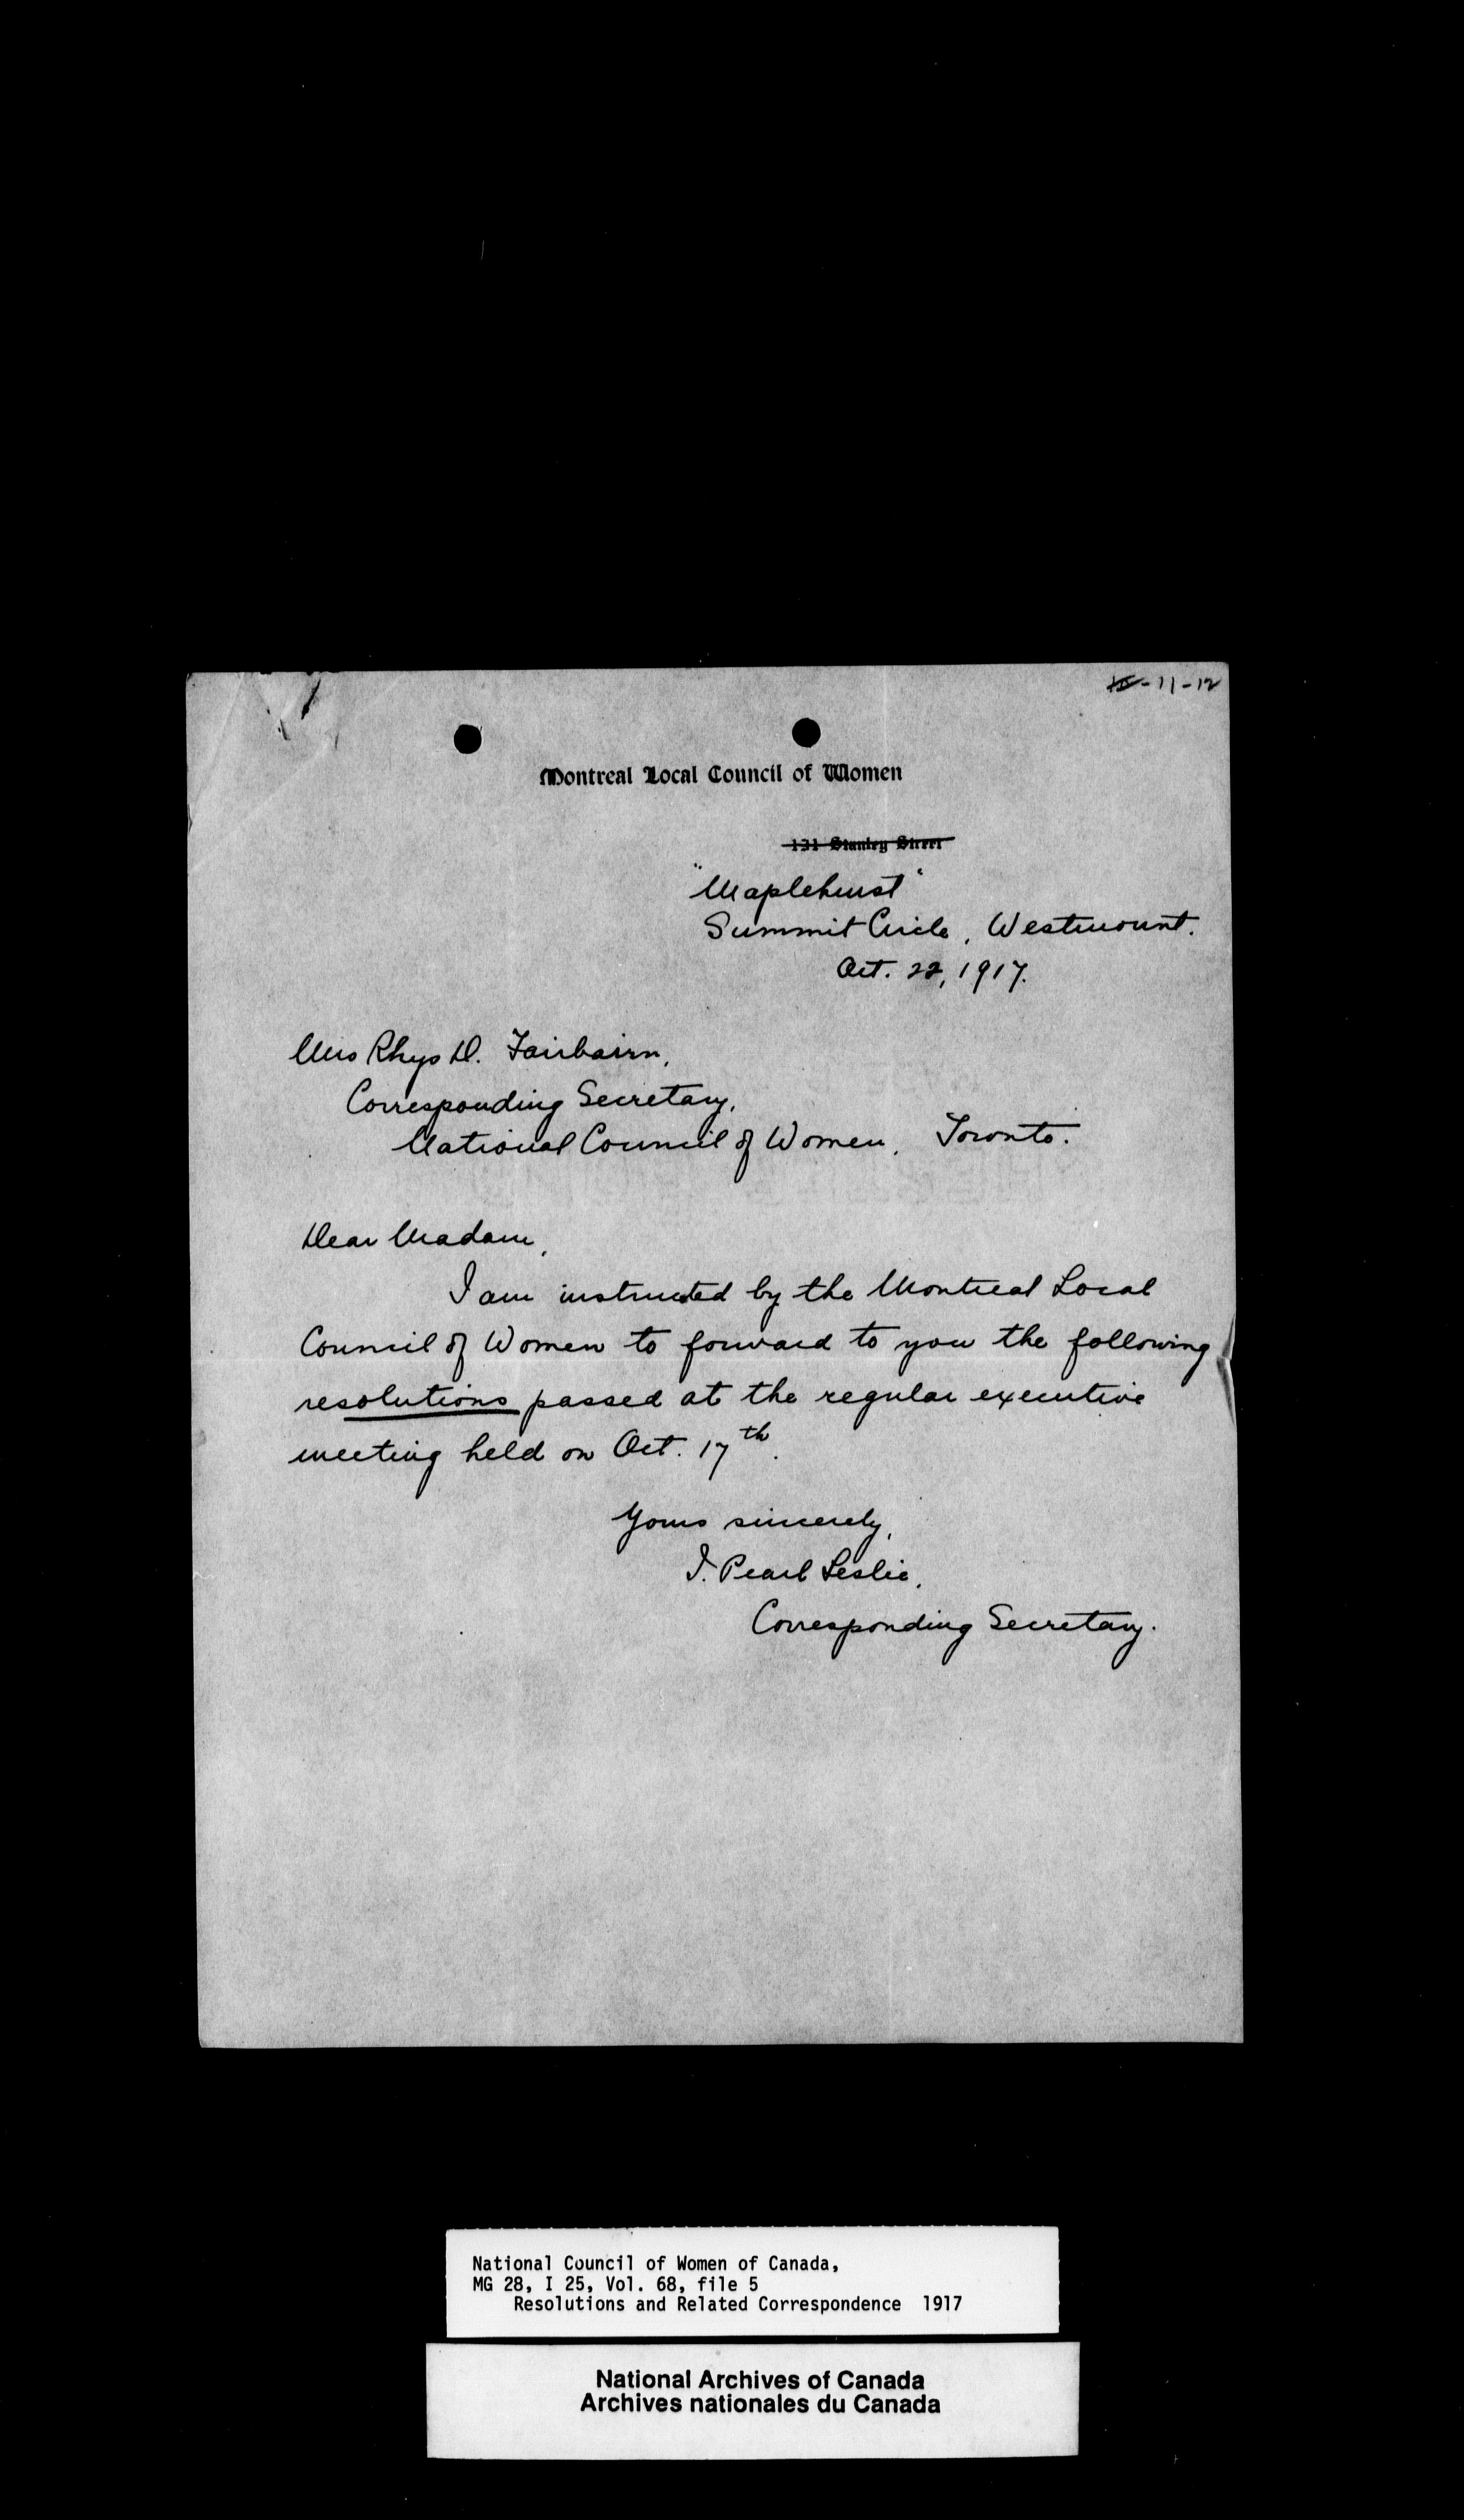 -11-12
Montreal Local Council of Women
131 Stanley Street
"Maplehurst"
Summit Circle, Westmount.
Oct. 22, 1917.
Mrs Rhys D. Fairbairn,
Corresponding Secretary,
National Council of Women, Toronto.
Dear Madam,
I am instructed by the Montreal Local
Council of Women to forward to you the following
resolutions passed at the regular executive
meeting held on Oct. 17th.
Yours sincerely,
I. Pearl Leslie,
Corresponding Secretary.
National Council of Women of Canada,
MG 28, I 25, Vol. 68, file 5
Resolutions and Related Correspondence 1917
National Archives of Canada
Archives nationales du Canada